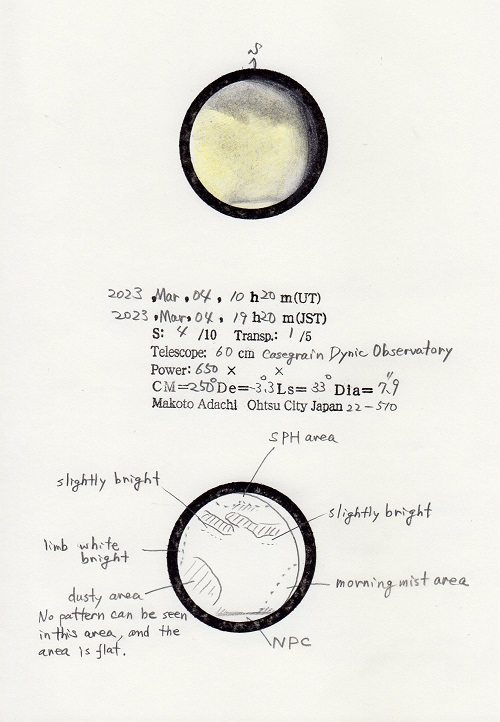 S
2023 . Mar . 04 , 10 h 20 m (UT)
2023 . Mar . 04 , 19 h 20 m (JST)
S: 4 /10 Transp.: 1 /5
Telescope: 60 cm Casegrain Dynic Observatory
Power: 650 × ×
CM=250° De=-3.3° Ls= 33° Dia= 7.9"
Makoto Adachi Ohtsu City Japan 22-510
SPH area
slightly bright
slightly bright
limb white
bright
morning mist area
dusty area
No pattern can be seen
in this area, and the
area is flat.
NPC